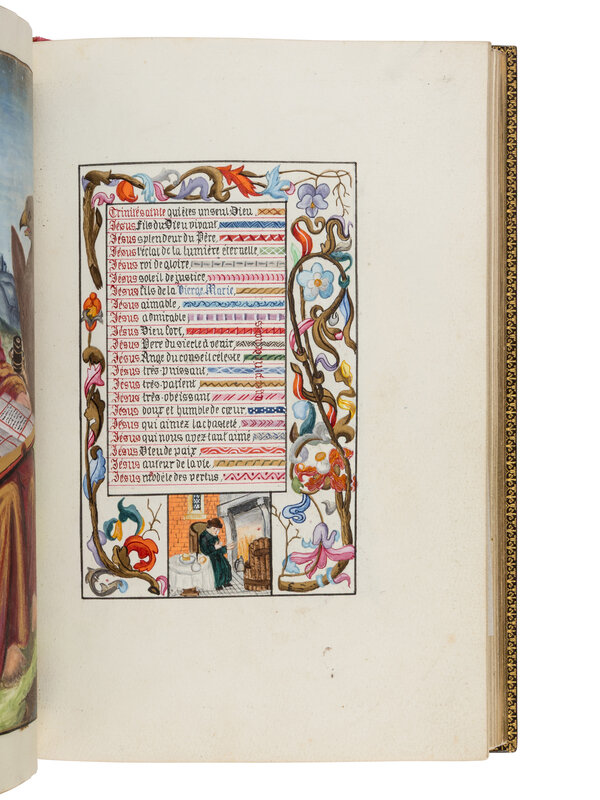 Trinité sainte qui êtes un seul Dieu,
Jésus fils du Dieu vivant,
Jésus splendeur du Père,
Jésus l'éclat de la lumière éternelle,
Jésus roi de gloire,
Jésus soleil de justice,
Jésus fils de la Vierge Marie,
Jésus aimable,
Jésus admirable
Jésus Dieu fort,
Jésus Père du siècle à venir,
Jésus Ange du conseil céleste
Jésus très-puissant,
Jésus très-patient
Jésus très-obéissant
Jésus doux et humble de cœur,
Jésus qui aimez la chasteté,
Jésus qui nous avez tant aimé
Jésus Dieu de paix,
Jésus auteur de la vie,
Jésus modèle des vertus,